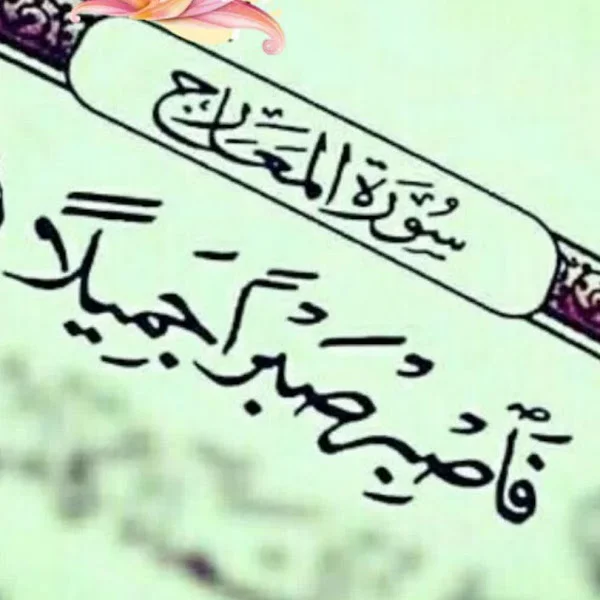 سُورَةُ المَعَارِج
فَٱصْبِرْ صَبْرًا جَمِيلًا